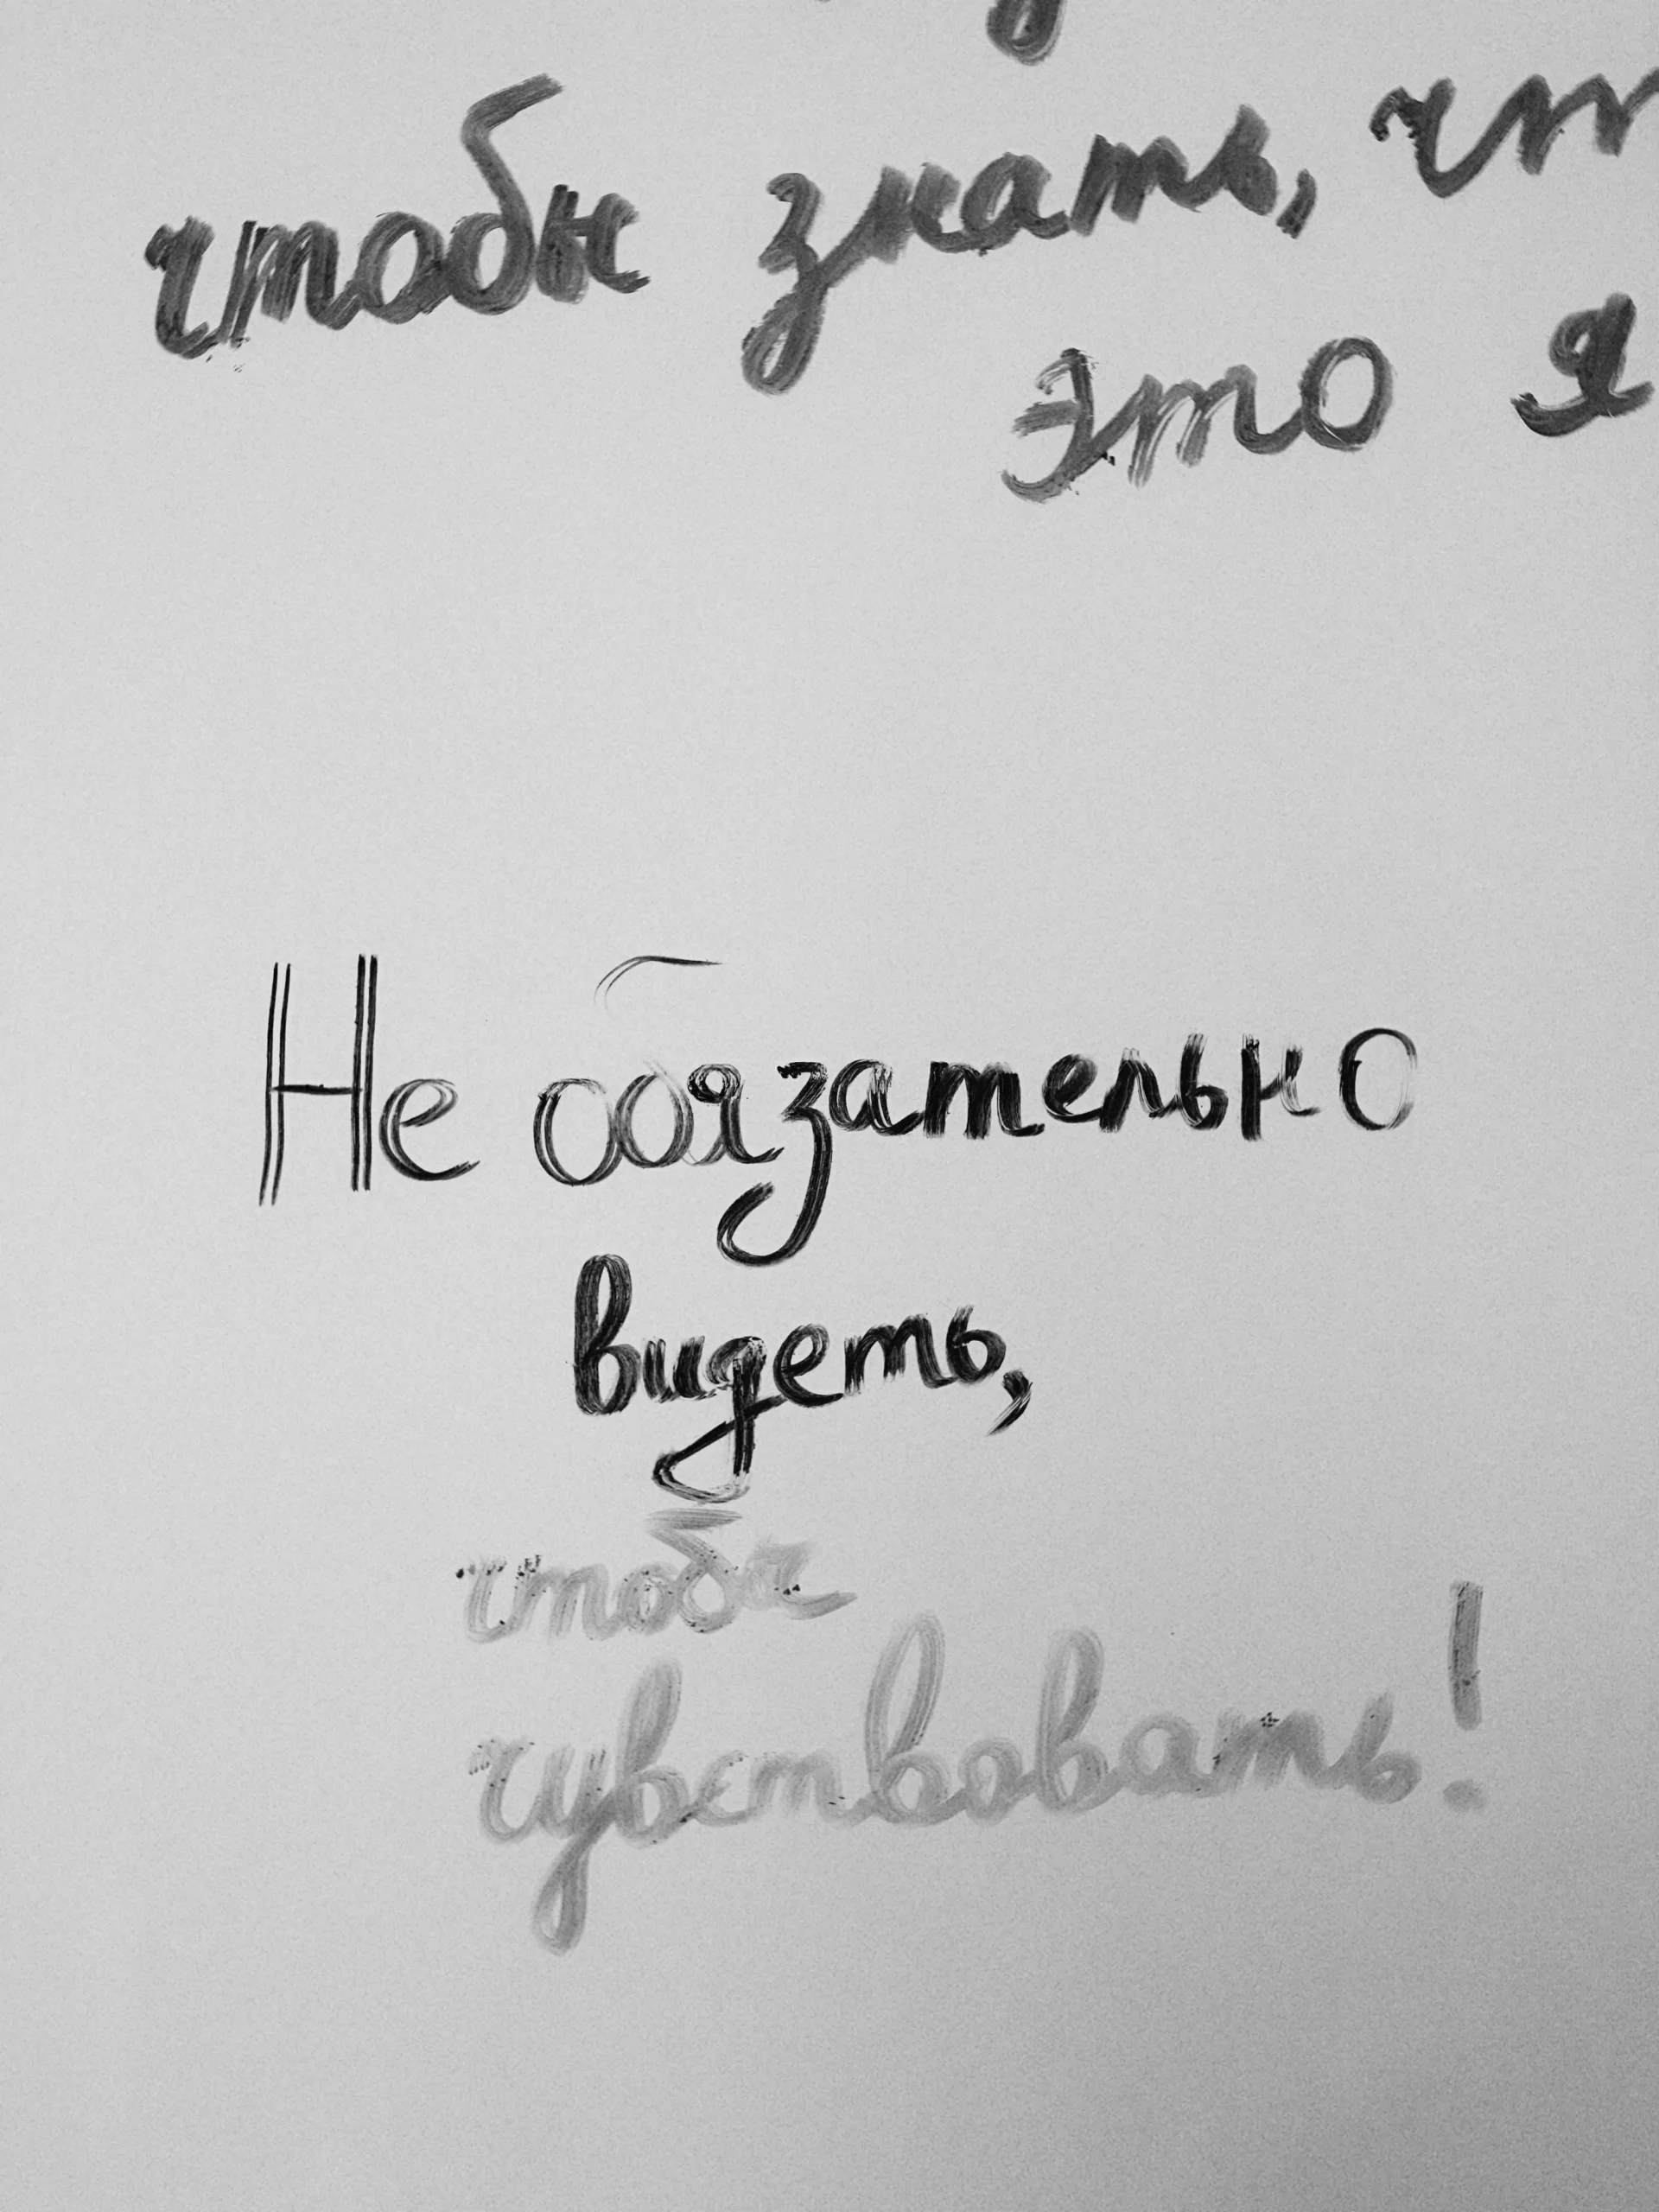 чтобы знать, чт
это я
Не обязательно
видеть,
чтобы
чувствовать!